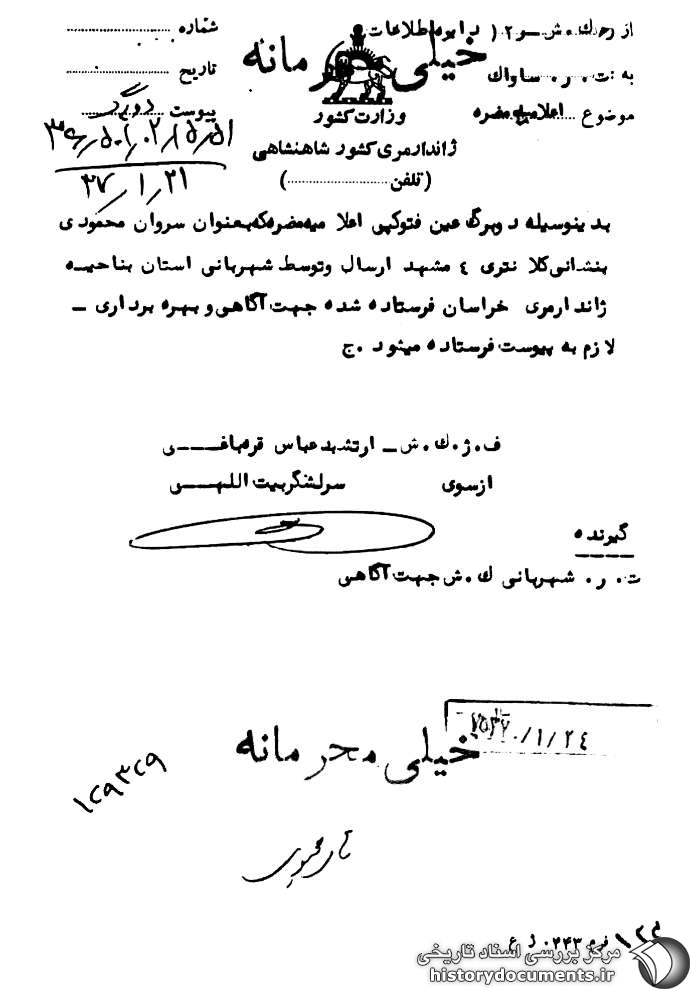 از رـ ك . ش ـ ر ۲ ( دایره اطلاعات
به : ت . ر . ساواك
موضوع اعلامیه مضره
خیلی محرمانه
وزارت کشور
ژاندارمری کشور شاهنشاهی
(تلفن ................)
شماره
تاریخ
پیوست دو برگ
۳۷/۱/۲۱
بدینوسیله دوبرگ عین فتوکپی اعلا میه مضره که بعنوان سروان محمودی
بنشانی کلا نتری ۴ مشهد ارسال وتوسط شهربانی استان بناحیه
ژاندارمری خراسان فرستاده شده جهت آگاهی و بهره برداری ـ
لازم به پیوست فرستاده میشود .ج
ف . ژ . ك . ش ـ ارتشبد عباس قره باغی
ازسوی سرلشگر بیت اللهی
گیرنده
ت . ر . شهربانی ك . ش جهت آگاهی
۲۵۳۷/۱/۲۴
خیلی محرمانه
۱۲۹۳۲۹
۱۲۳
فرم ۰۴۴۳ ژ ع
مرکز بررسی اسناد تاریخی
historydocuments.ir